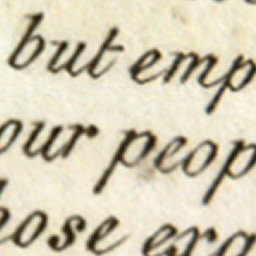 but emp
our peop
hose era